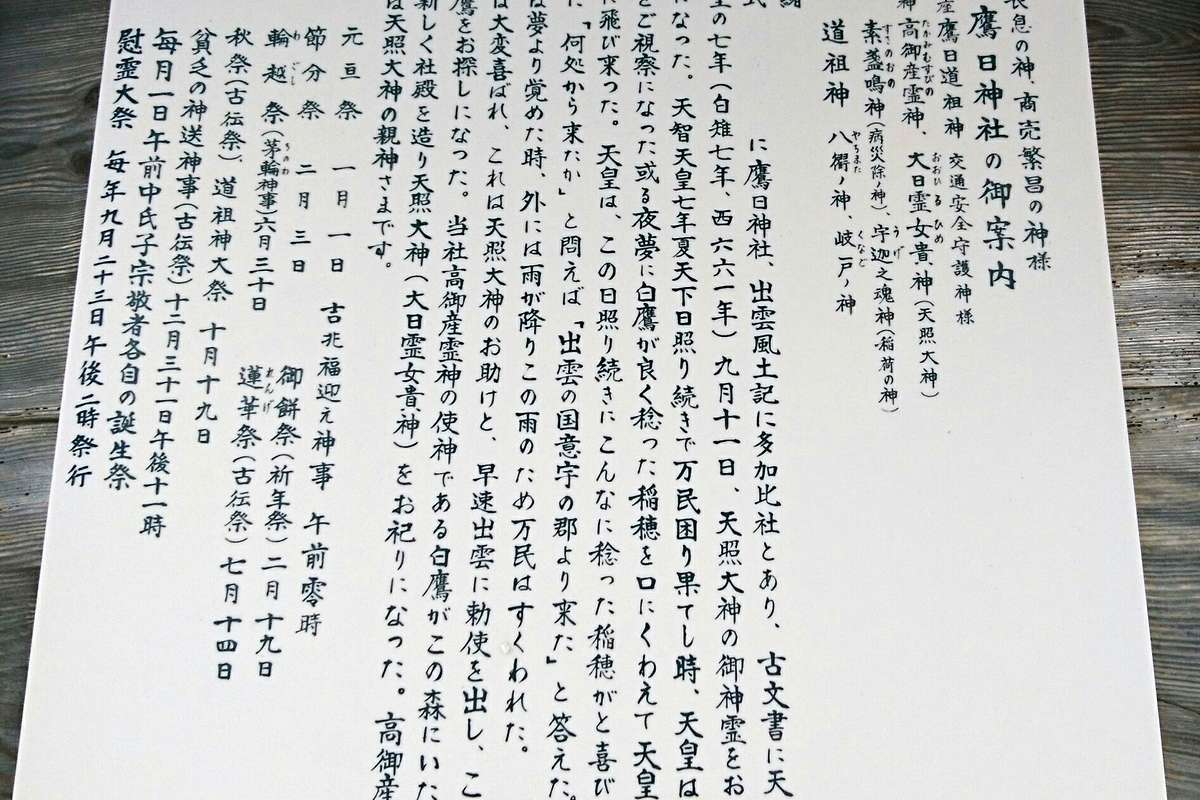 長息の神、商売繁昌の神様
鷹日神社の御案内
産 鷹日道祖神 交通安全守護神様
神 高御産霊神、大日霊女貴神(天照大神)
素盞鳴神(病災除ノ神)、宇迦之魂神(稲荷の神)
道祖神 八衢ノ神、岐戸ノ神
に鷹日神社、出雲風土記に多加比社とあり、古文書に天
皇の七年(白雉七年、西六六一年)九月十一日、天照大神の御神霊をお
になった。天智天皇七年夏天下日照り続きで万民困り果てし時、天皇は
をご視察になった或る夜夢に白鷹が良く稔った稲穂を口にくわえて天皇
に飛び来った。天皇は、この日照り続きにこんなに稔った稲穂がと喜び
た「何処から来たか」と問えば「出雲の国意宇の郡より来た」と答えた。
は夢より覚めた時、外には雨が降りこの雨のため万民はすくわれた。
は大変喜ばれ、これは天照大神のお助けと、早速出雲に勅使を出し、こ
鷹をお探しになった。当社高御産霊神の使神である白鷹がこの森にいた
新しく社殿を造り天照大神(大日霊女貴神)をお祀りになった。高御産
は天照大神の親神さまです。
元旦祭 一月一日 吉兆福迎え神事 午前零時
節分祭 二月三日 御餅祭(祈年祭)二月十九日
輪越祭(茅輪神事)六月三十日 蓮華祭(古伝祭)七月十四日
秋祭(古伝祭)、道祖神大祭 十月十九日
貧乏の神送神事(古伝祭)十二月三十一日午後十一時
毎月一日午前中氏子宗敬者各自の誕生祭
慰霊大祭 毎年九月二十三日午後二時祭行